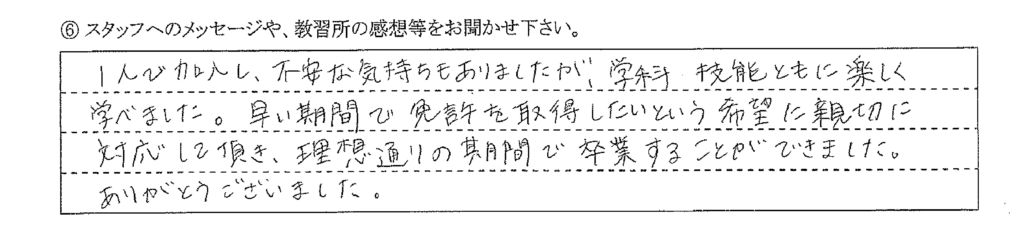 ⑥ スタッフへのメッセージや、教習所の感想等をお聞かせ下さい。
1人で加入し、不安な気持ちもありましたが、学科 技能ともに楽しく
学べました。早い期間で免許を取得したいという希望に親切に
対応して頂き、理想通りの期間で卒業することができました。
ありがとうございました。